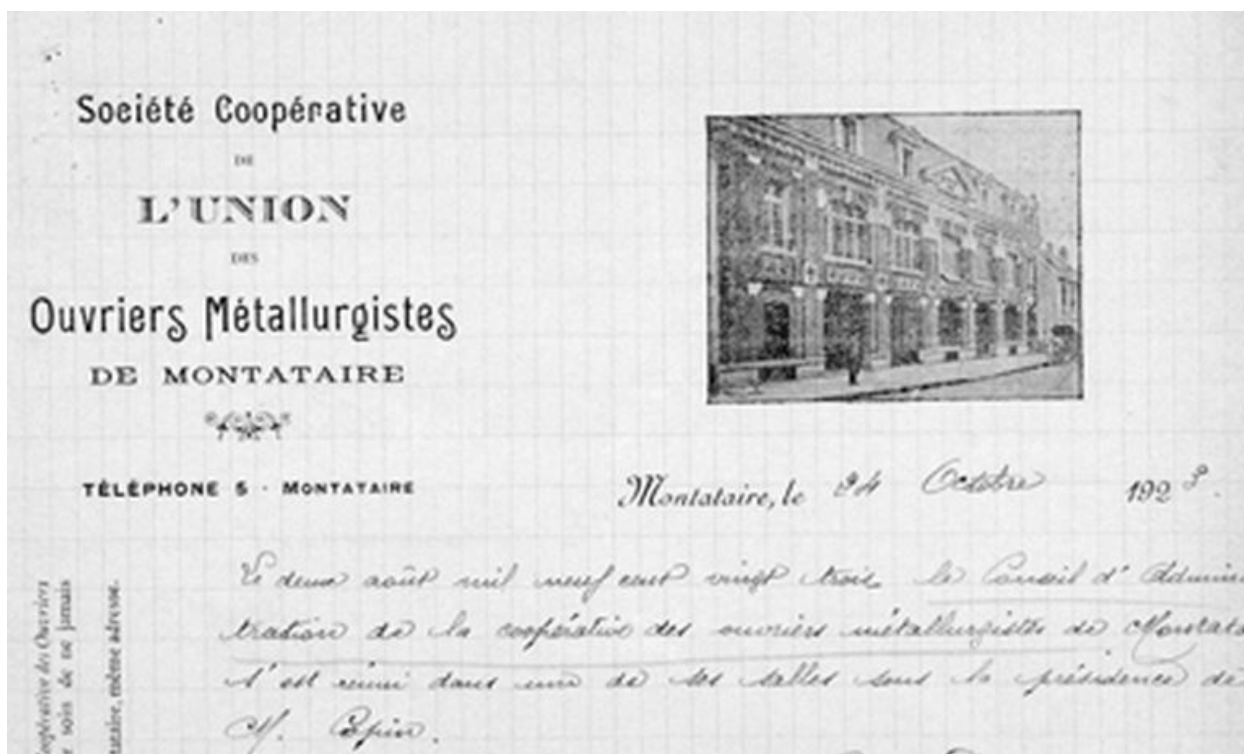 Société Coopérative
DE
L'UNION
DES
Ouvriers Métallurgistes
DE MONTATAIRE
TÉLÉPHONE 5 - MONTATAIRE
Montataire, le 24 Octobre 1923.
Le deux août mil neuf cent vingt trois le Conseil d'Adminis
tration de la coopérative des ouvriers métallurgistes de Montata
s'est réuni dans une de ses salles sous la présidence de
M. Copin.
oopérative des Ouvriers
soin de ne jamais
tataire, même adresse.